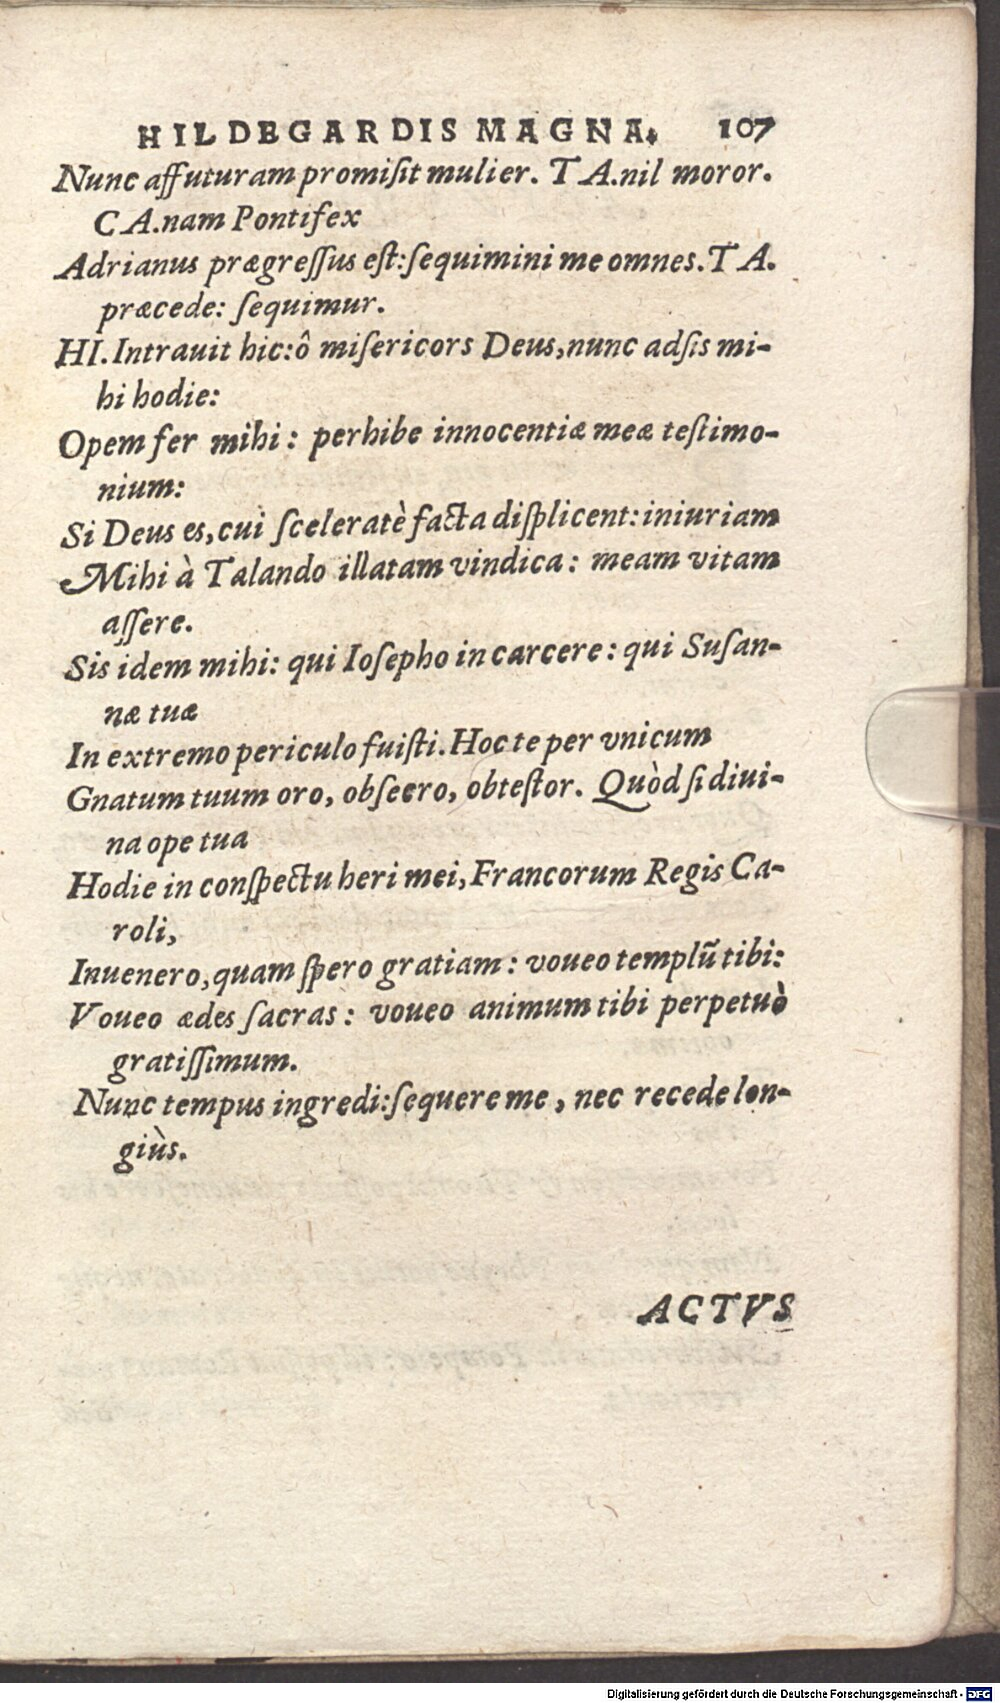 HILDEGARDIS MAGNA. 107
Nunc affuturam promiſit mulier. TA. nil moror.
CA. nam Pontifex
Adrianus prægreſſus eſt: ſequimini me omnes. TA.
præcede: ſequimur.
HI. Intrauit hic: ô miſericors Deus, nunc adſis mi-
hi hodie:
Opem fer mihi: perhibe innocentiæ meæ teſtimo-
nium:
Si Deus es, cui ſceleratè facta diſplicent: iniuriam
Mihi à Talando illatam vindica: meam vitam
aſſere.
Sis idem mihi: qui Ioſepho in carcere: qui Suſan-
næ tuæ
In extremo periculo fuiſti. Hoc te per vnicum
Gnatum tuum oro, obſecro, obteſtor. Quòd ſi diui-
na ope tua
Hodie in conſpectu heri mei, Francorum Regis Ca-
roli,
Inuenero, quam ſpero gratiam: voueo templũ tibi:
Voueo ædes ſacras: voueo animum tibi perpetuò
gratiſſimum.
Nunc tempus ingredi: ſequere me, nec recede lon-
giùs.
ACTVS
Digitalisierung gefördert durch die Deutsche Forschungsgemeinschaft - DFG